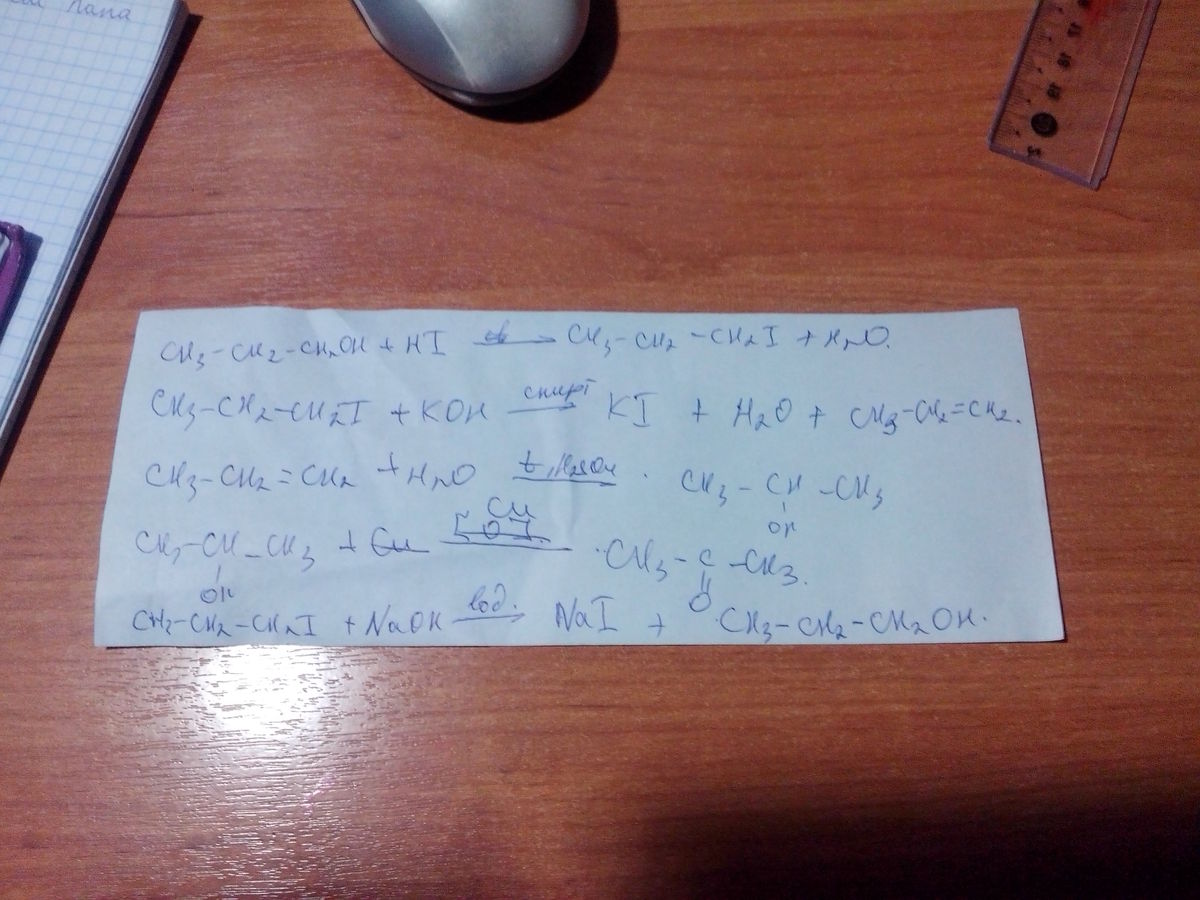 папа
CH3-CH2-CH2OH + HI t→ CH3-CH2-CH2I + H2O.
CH3-CH2-CH2I + KOH спирт→ KI + H2O + CH3-CH2=CH2.
CH3-CH2=CH2 + H2O t, H2SO4→ CH3-CH-CH3
OH
CH3-CH-CH3 + Cu Cu [O]→ CH3-C-CH3.
OH O
CH2-CH2-CH2I + NaOH вод.→ NaI + CH3-CH2-CH2OH.